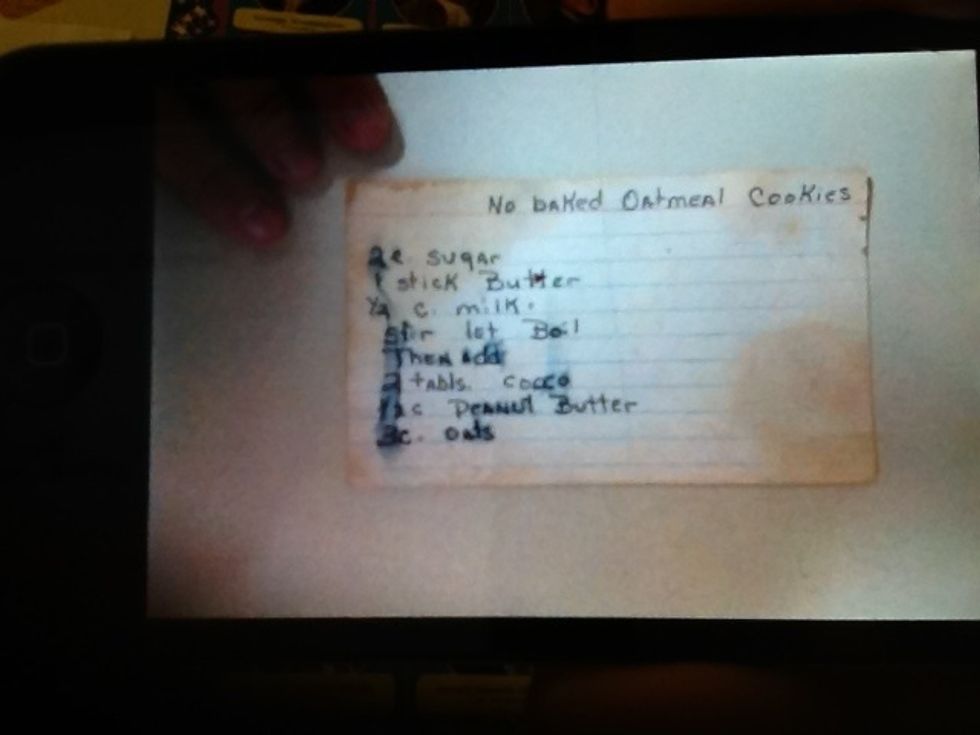 No baked Oatmeal Cookies
2 c. sugar
1 stick Butter
1/2 c. milk.
Stir let Boil
Then Add
2 tabls. cocco
1/2 c Peanut Butter
3c. oats